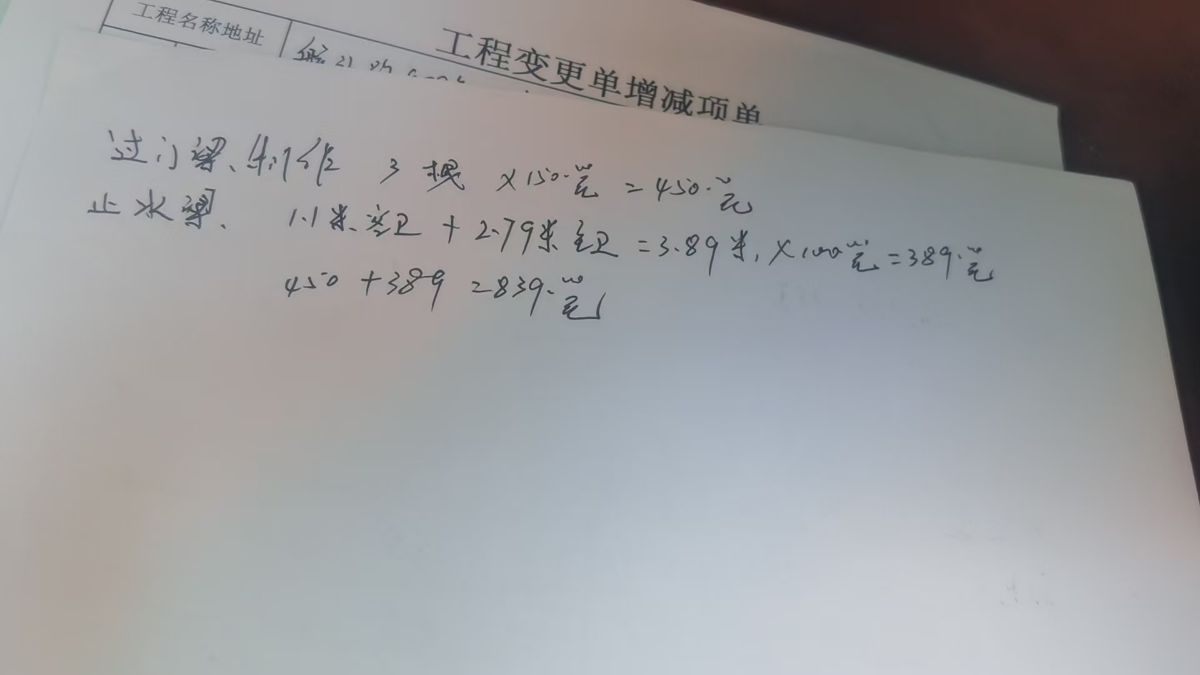 工程变更单增减项单
工程名称地址
过门梁、制作 3根 ×150.00元 = 450.00元
止水梁、 1.1米.客卫 + 2.79米主卫 = 3.89米, ×100.00元 = 389.00元
450 + 389 = 839.00元